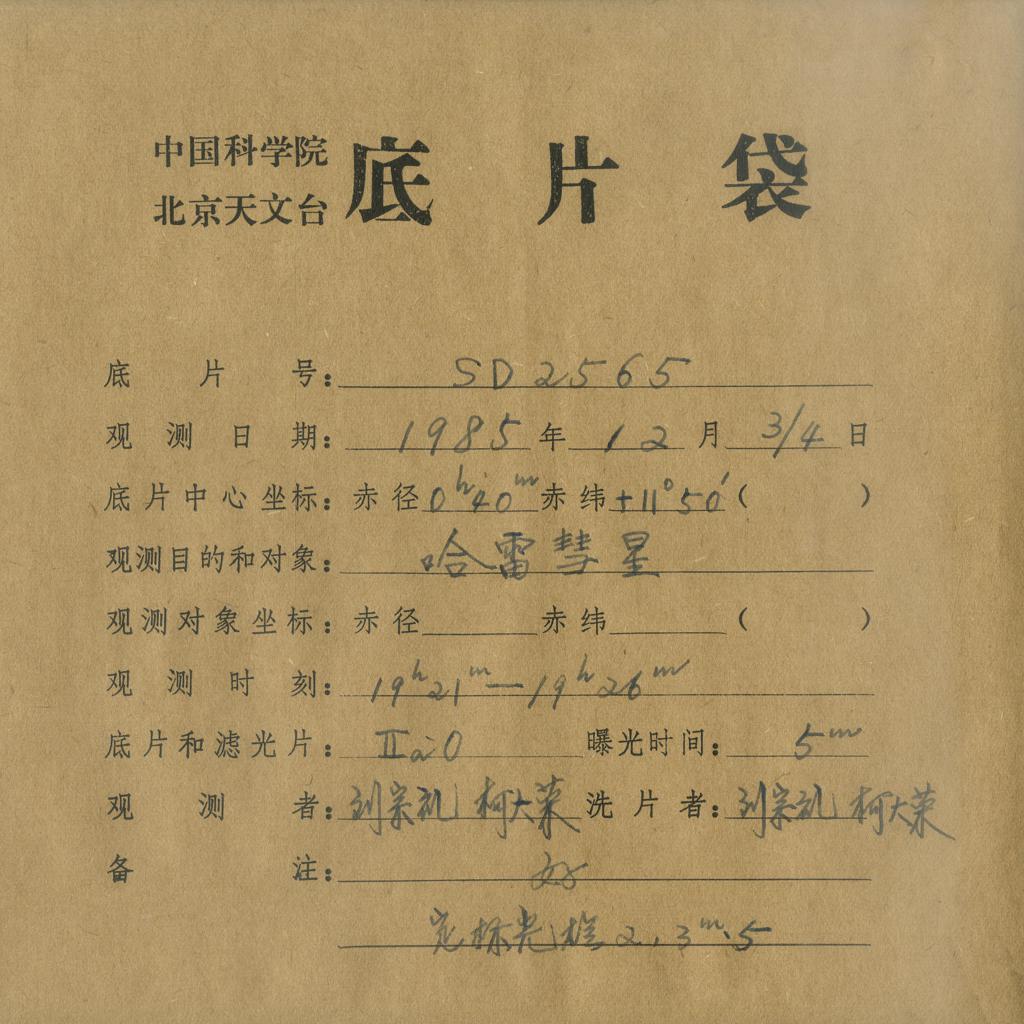 中国科学院
北京天文台
底片袋
底片号：SD2565
观测日期：1985年12月3/4日
底片中心坐标：赤径0ʰ40ᵐ赤纬+11°50′（ ）
观测目的和对象：哈雷彗星
观测对象坐标：赤径 赤纬 （ ）
观测时刻：19ʰ21ᵐ—19ʰ26ᵐ
底片和滤光片：IIa-O 曝光时间：5ᵐ
观测者：刘宗礼 柯大荣 洗片者：刘宗礼 柯大荣
备注：好
定标光楔2，3ᵐ.5